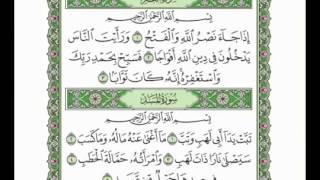 بِسْمِ اللَّهِ الرَّحْمَٰنِ الرَّحِيمِ
إِذَا جَاءَ نَصْرُ اللَّهِ وَالْفَتْحُ ١ وَرَأَيْتَ النَّاسَ
يَدْخُلُونَ فِي دِينِ اللَّهِ أَفْوَاجًا ٢ فَسَبِّحْ بِحَمْدِ رَبِّكَ
وَاسْتَغْفِرْهُ إِنَّهُ كَانَ تَوَّابًا ٣
سُورَةُ المَسَدِ
بِسْمِ اللَّهِ الرَّحْمَٰنِ الرَّحِيمِ
تَبَّتْ يَدَا أَبِي لَهَبٍ وَتَبَّ ١ مَا أَغْنَىٰ عَنْهُ مَالُهُ وَمَا كَسَبَ ٢
سَيَصْلَىٰ نَارًا ذَاتَ لَهَبٍ ٣ وَامْرَأَتُهُ حَمَّالَةَ الْحَطَبِ ٤